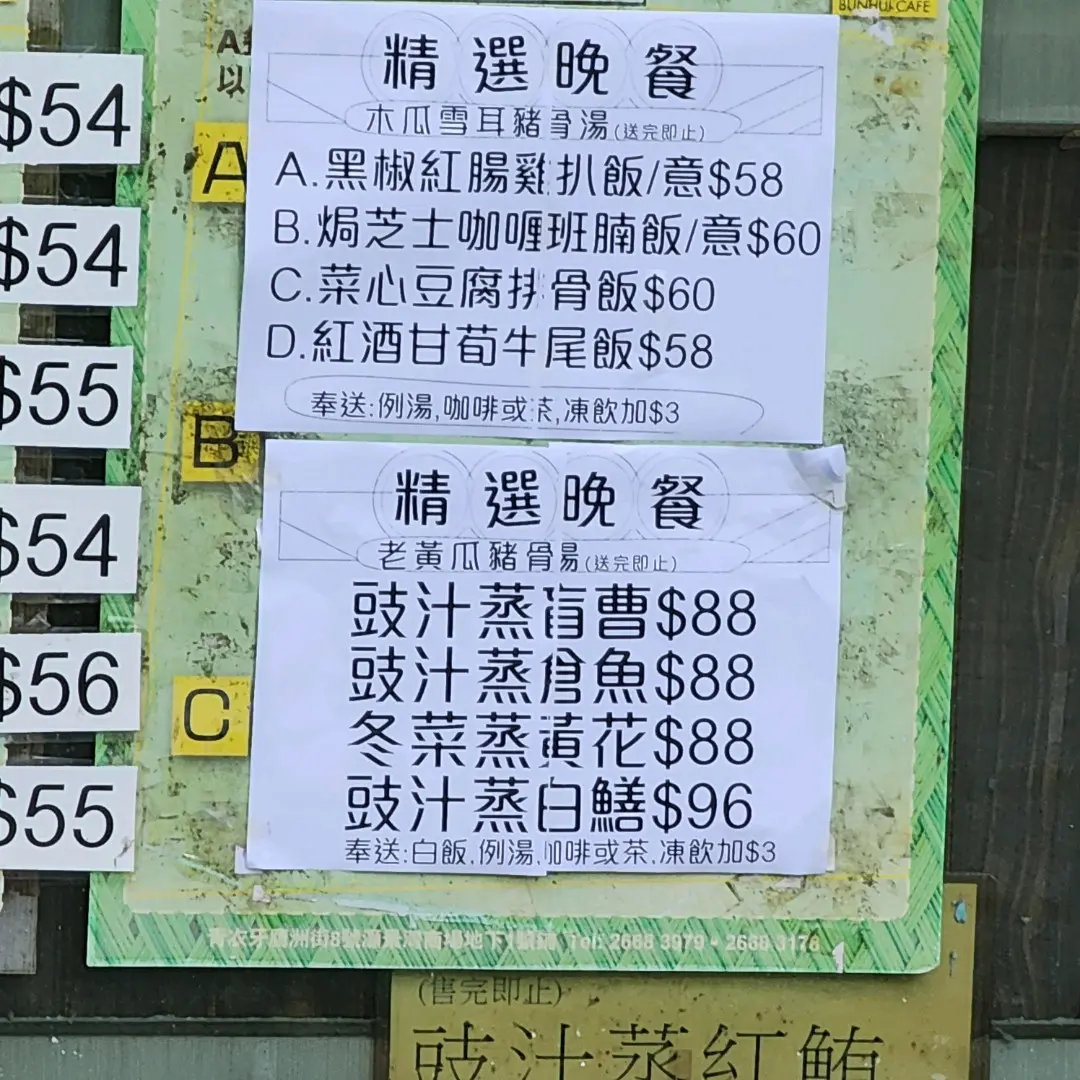 BUNHUI CAFE
$54
$54
$55
$54
$56
$55
A
以
A
B
C
精選晚餐
木瓜雪耳豬骨湯(送完即止)
A.黑椒紅腸雞扒飯/意$58
B.焗芝士咖喱班腩飯/意$60
C.菜心豆腐排骨飯$60
D.紅酒甘荀牛尾飯$58
奉送:例湯,咖啡或茶,凍飲加$3
精選晚餐
老黃瓜豬骨湯(送完即止)
豉汁蒸盲曹$88
豉汁蒸倉魚$88
冬菜蒸黃花$88
豉汁蒸白鱔$96
奉送:白飯,例湯,咖啡或茶,凍飲加$3
青衣牙鷹洲街8號灝景灣商場地下1號鋪 Tel: 2668 3979・2668 3178
(售完即止)
豉汁蒸紅鮋